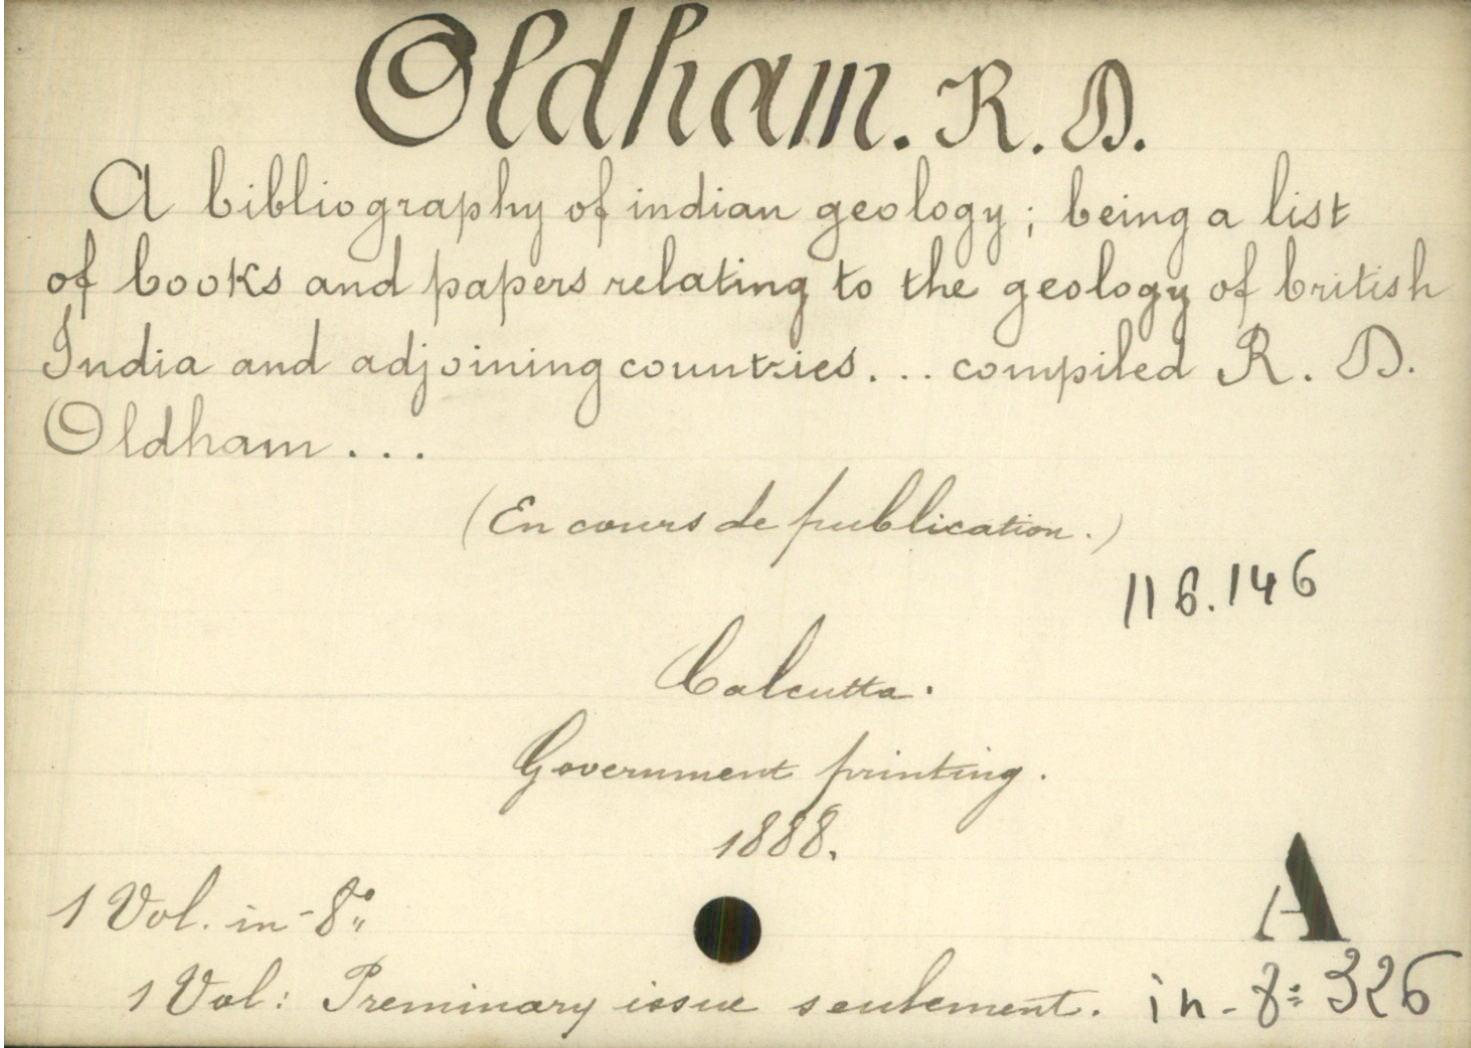 Oldham. R. D.
A bibliography of indian geology; being a list
of books and papers relating to the geology of british
India and adjoining countries... compiled R. D.
Oldham...
(En cours de publication.)
116.146
Calcutta.
Government printing.
1888.
1 Vol. in-8°
A
1 Vol: Preminary issue seulement. in-8° 326